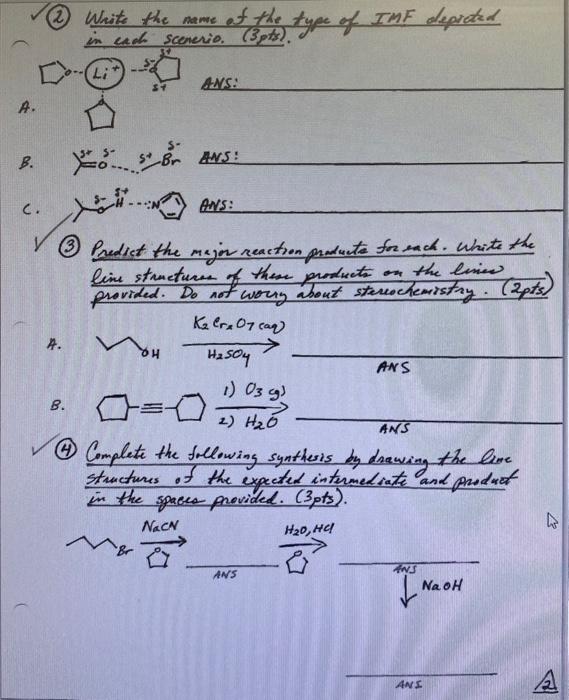 ✓ ② Write the name of the type of IMF depicted
in each scenerio. (3pts).
Li⁺ O δ- δ+ δ+
ANS:
A.
B. δ+ δ- O δ+ δ- Br ANS:
C. δ- O δ+ H :N ANS:
✓ ③ Predict the major reaction products for each. Write the
line structures of these products on the lines
provided. Do not worry about stereochemistry. (2pts)
K₂Cr₂O₇ (aq)
A. OH H₂SO₄
ANS
1) O₃ (g)
B. 2) H₂O
ANS
✓ ④ Complete the following synthesis by drawing the line
structures of the expected intermediate and product
in the spaces provided. (3pts).
NaCN H₂O, HCl
Br O O
ANS ANS
NaOH
ANS
2